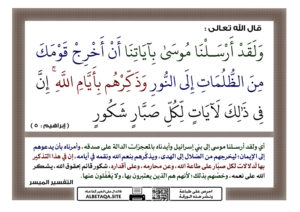 قال الله تعالى :
وَلَقَدْ أَرْسَلْنَا مُوسَىٰ بِآيَاتِنَا أَنْ أَخْرِجْ قَوْمَكَ
مِنَ الظُّلُمَاتِ إِلَى النُّورِ وَذَكِّرْهُم بِأَيَّامِ اللَّهِ ۚ إِنَّ
فِي ذَٰلِكَ لَآيَاتٍ لِّكُلِّ صَبَّارٍ شَكُورٍ
( إبراهيم : ٥ )
أي ولقد أرسلنا موسى إلى بني إسرائيل وأيدناه بالمعجزات الدالة على صدقه ، وأمرناه بأن يدعوهم
إلى الإيمان؛ ليخرجهم من الضلال إلى الهدى، ويذكرهم بنعم الله ونقمه في أيامه، إن في هذا التذكير
بها لدلالات لكل صبار على طاعة الله، وعن محارمه، وعلى أقداره، شكور قائم بحقوق الله، يشكر
الله على نعمه ، وخصهم بذلك؛ لأنهم هم الذين يعتبرون بها، ولا يغفلون عنها.
التفسير الميسر
احرص على طباعة
ونشر هذه البطاقة
ALBETAQA.SITE